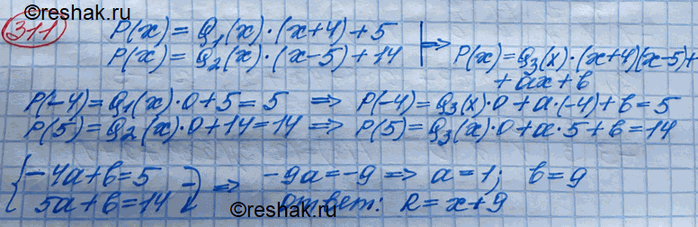 ©reshak.ru
311
P(x) = Q₁(x)·(x+4)+5
P(x) = Q₂(x)·(x-5)+14
⇒ P(x) = Q₃(x)·(x+4)(x-5)+
+ax+b
P(-4) = Q₁(x)·0+5=5 ⇒ P(-4)=Q₃(x)·0+a·(-4)+b=5
P(5) = Q₂(x)·0+14=14 ⇒ P(5)=Q₃(x)·0+a·5+b=14
{-4a+b=5
5a+b=14 -} ⇒ -9a=-9 ⇒ a=1; b=9
Ответ: R=x+9
©reshak.ru